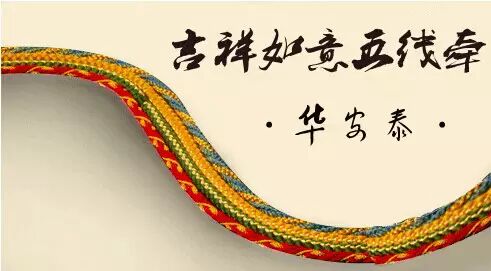 吉祥如意五线牵
·华安泰·